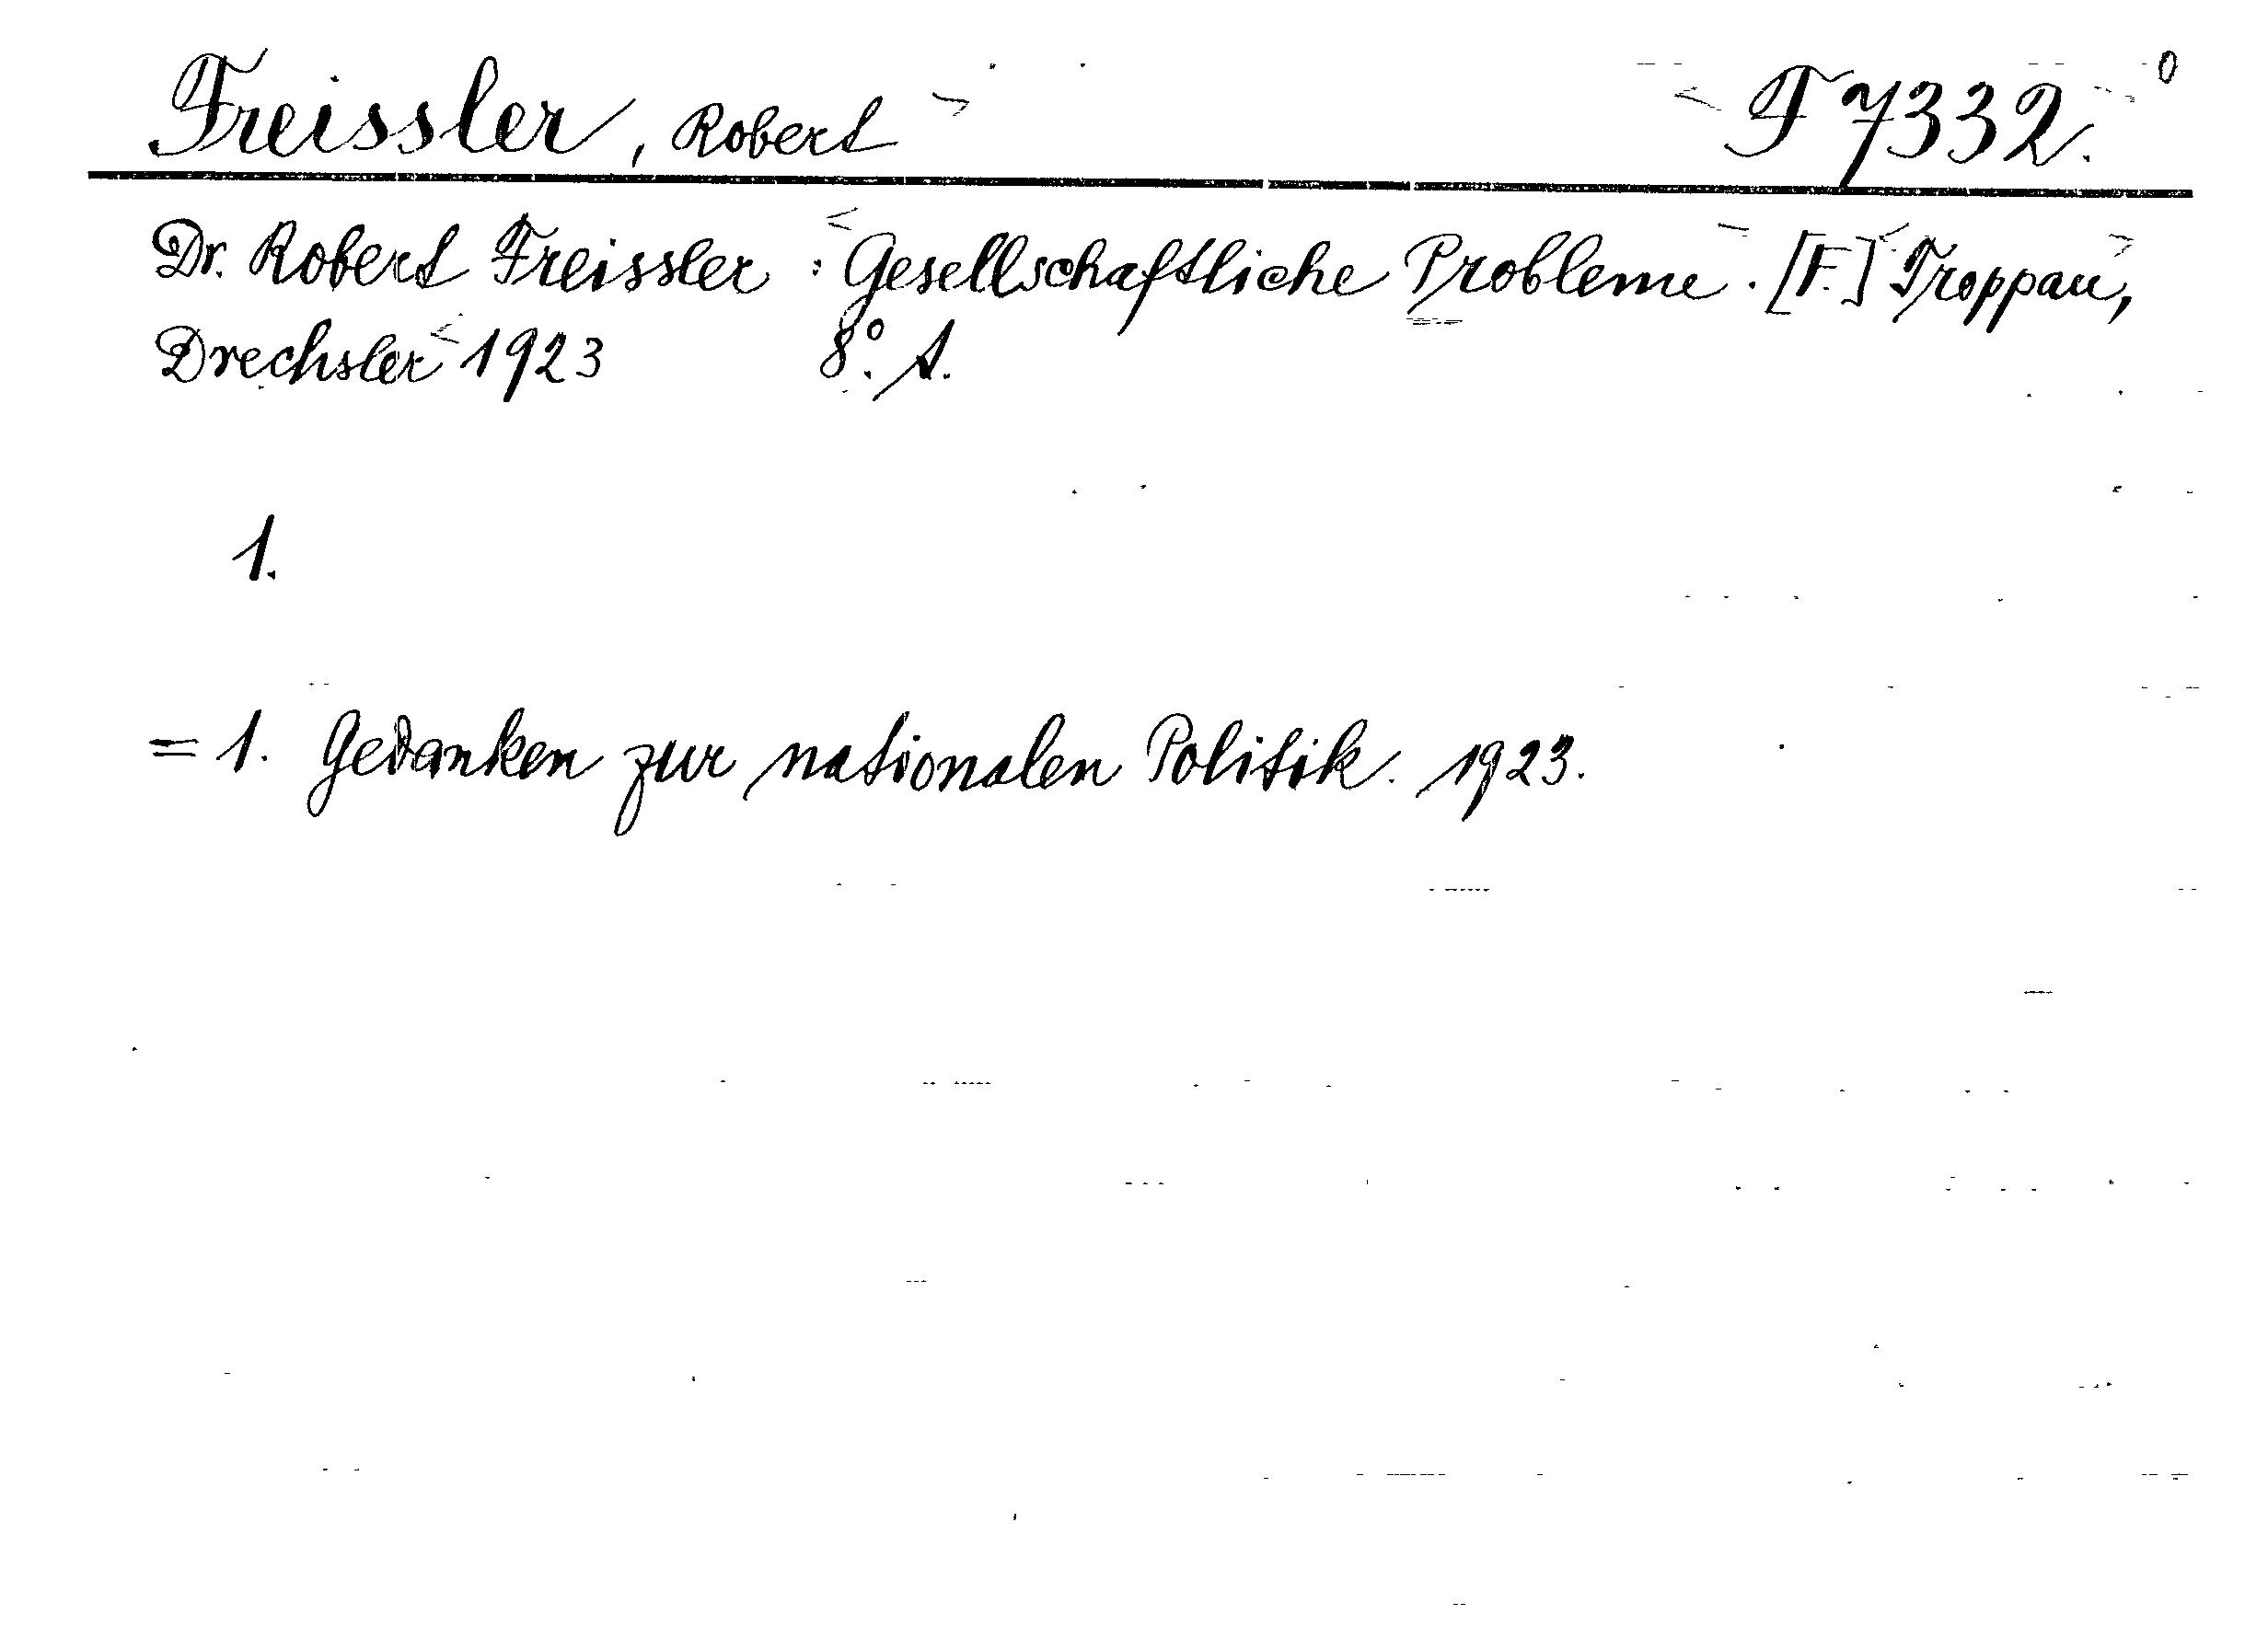 Freissler, Robert F 7332. 0
Dr. Robert Freissler: Gesellschaftliche Probleme. [F.] Troppau,
Drechsler 1923 8°. A.
1.
= 1. Gedanken zur nationalen Politik. 1923.